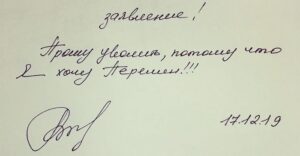 заявление!
Прошу уволить, потому что
я хочу Перемен!!!
17.12.19